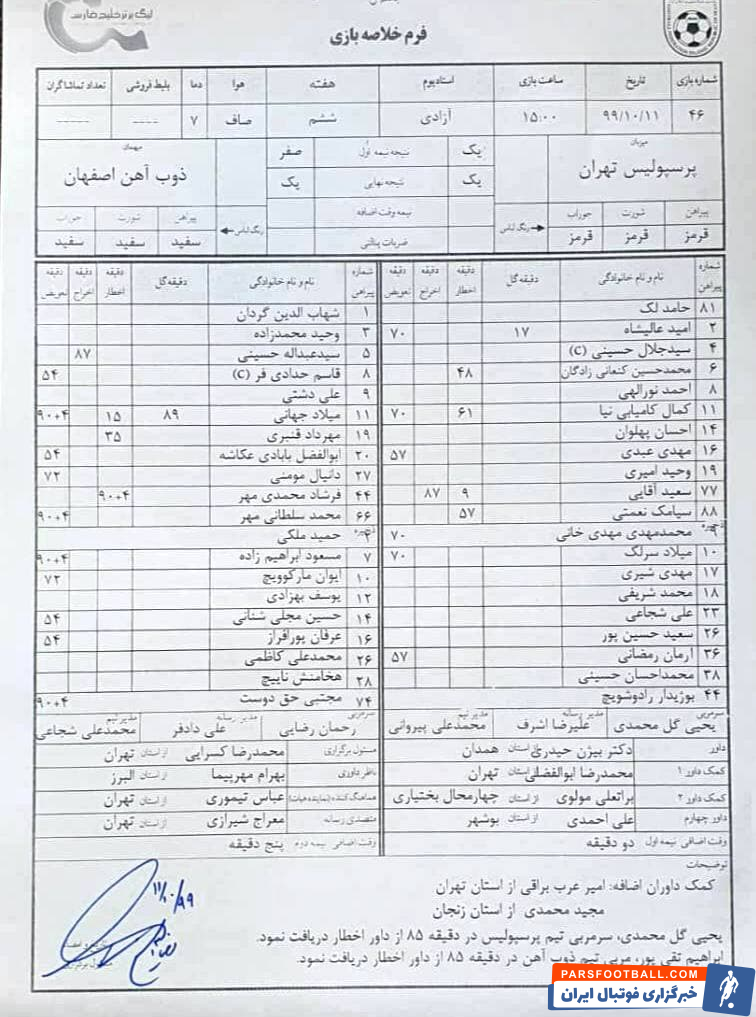 لیگ برتر خلیج فارس
فرم خلاصه بازی
شماره بازی تاریخ ساعت بازی استادیوم هفته هوا دما بلیط فروشی تعداد تماشاگران
۴۶ ۹۹/۱۰/۱۱ ۱۵:۰۰ آزادی ششم صاف ۷ ---- -----
میزبان مهمان
پرسپولیس تهران ذوب آهن اصفهان
یک نتیجه نیمه اول صفر
یک نتیجه نهایی یک
نیمه وقت اضافه
ضربات پنالتی
پیراهن شورت جوراب رنگ لباس رنگ لباس پیراهن شورت جوراب
قرمز قرمز قرمز سفید سفید سفید
شماره پیراهن نام و نام خانوادگی دقیقه گل دقیقه اخطار دقیقه اخراج دقیقه تعویض
شماره پیراهن نام و نام خانوادگی دقیقه گل دقیقه اخطار دقیقه اخراج دقیقه تعویض
۸۱ حامد لک
۲ امید عالیشاه ۱۷ ۷۰
۴ سیدجلال حسینی (C)
۶ محمدحسین کنعانی زادگان ۴۸
۸ احمد نورالهی
۱۱ کمال کامیابی نیا ۶۱ ۷۰
۱۴ احسان پهلوان
۱۶ مهدی عبدی ۵۷
۱۹ وحید امیری
۷۷ سعید آقایی ۹ ۸۷
۸۸ سیامک نعمتی ۵۷
ذخیره
۹ محمدمهدی مهدی خانی ۷۰
۱۰ میلاد سرلک ۷۰
۱۷ مهدی شیری
۱۸ محمد شریفی
۲۳ علی شجاعی
۲۶ سعید حسین پور
۳۶ آرمان رمضانی ۵۷
۳۸ محمداحسان حسینی
۴۴ بوژیدار رادوشویچ
۱ شهاب الدین گردان
۳ وحید محمدزاده
۵ سیدعبداله حسینی ۸۷
۸ قاسم حدادی فر (C) ۵۴
۹ علی دشتی
۱۱ میلاد جهانی ۸۹ ۱۵ ۹۰+۴
۱۹ مهرداد قنبری ۳۵
۲۰ ابوالفضل بابادی عکاشه ۵۴
۲۷ دانیال مومنی ۷۲
۴۴ فرشاد محمدی مهر ۹۰+۴
۶۶ محمد سلطانی مهر ۹۰+۴
ذخیره
حمید ملکی
۷ مسعود ابراهیم زاده ۹۰+۴
۱۰ ایوان مارکوویچ ۷۲
۱۲ یوسف بهزادی
۱۴ حسین مجلی شنانی ۵۴
۱۶ عرفان پورافراز ۵۴
۲۶ محمدعلی کاظمی
۲۸ هخامنش ناییچ
۷۴ مجتبی حق دوست ۹۰+۴
سرمربی یحیی گل محمدی مدیر رسانه علیرضا اشرف مدیر تیم محمدعلی پیروانی
سرمربی رحمان رضایی مدیر رسانه علی دادفر مدیر تیم محمدعلی شجاعی
داور دکتر بیژن حیدری از استان همدان
مسئول برگزاری محمدرضا کسرایی از استان تهران
کمک داور ۱ محمدرضا ابوالفضلی از استان تهران
ناظر داوری بهرام مهرپیما از استان البرز
کمک داور ۲ براتعلی مولوی از استان چهارمحال بختیاری
هماهنگ کننده (نماینده هیات) عباس تیموری از استان تهران
داور چهارم علی احمدی از استان بوشهر
متصدی رسانه معراج شیرازی از استان تهران
وقت اضافی نیمه اول دو دقیقه
وقت اضافی نیمه دوم پنج دقیقه
توضیحات
کمک داوران اضافه: امیر عرب براقی از استان تهران
مجید محمدی از استان زنجان
یحیی گل محمدی، سرمربی تیم پرسپولیس در دقیقه ۸۵ از داور اخطار دریافت نمود.
ابراهیم تقی پور، مربی تیم ذوب آهن در دقیقه ۸۵ از داور اخطار دریافت نمود.
۹۹/۱۰/۱۱
PARSFOOTBALL.COM
خبرگزاری فوتبال ایران